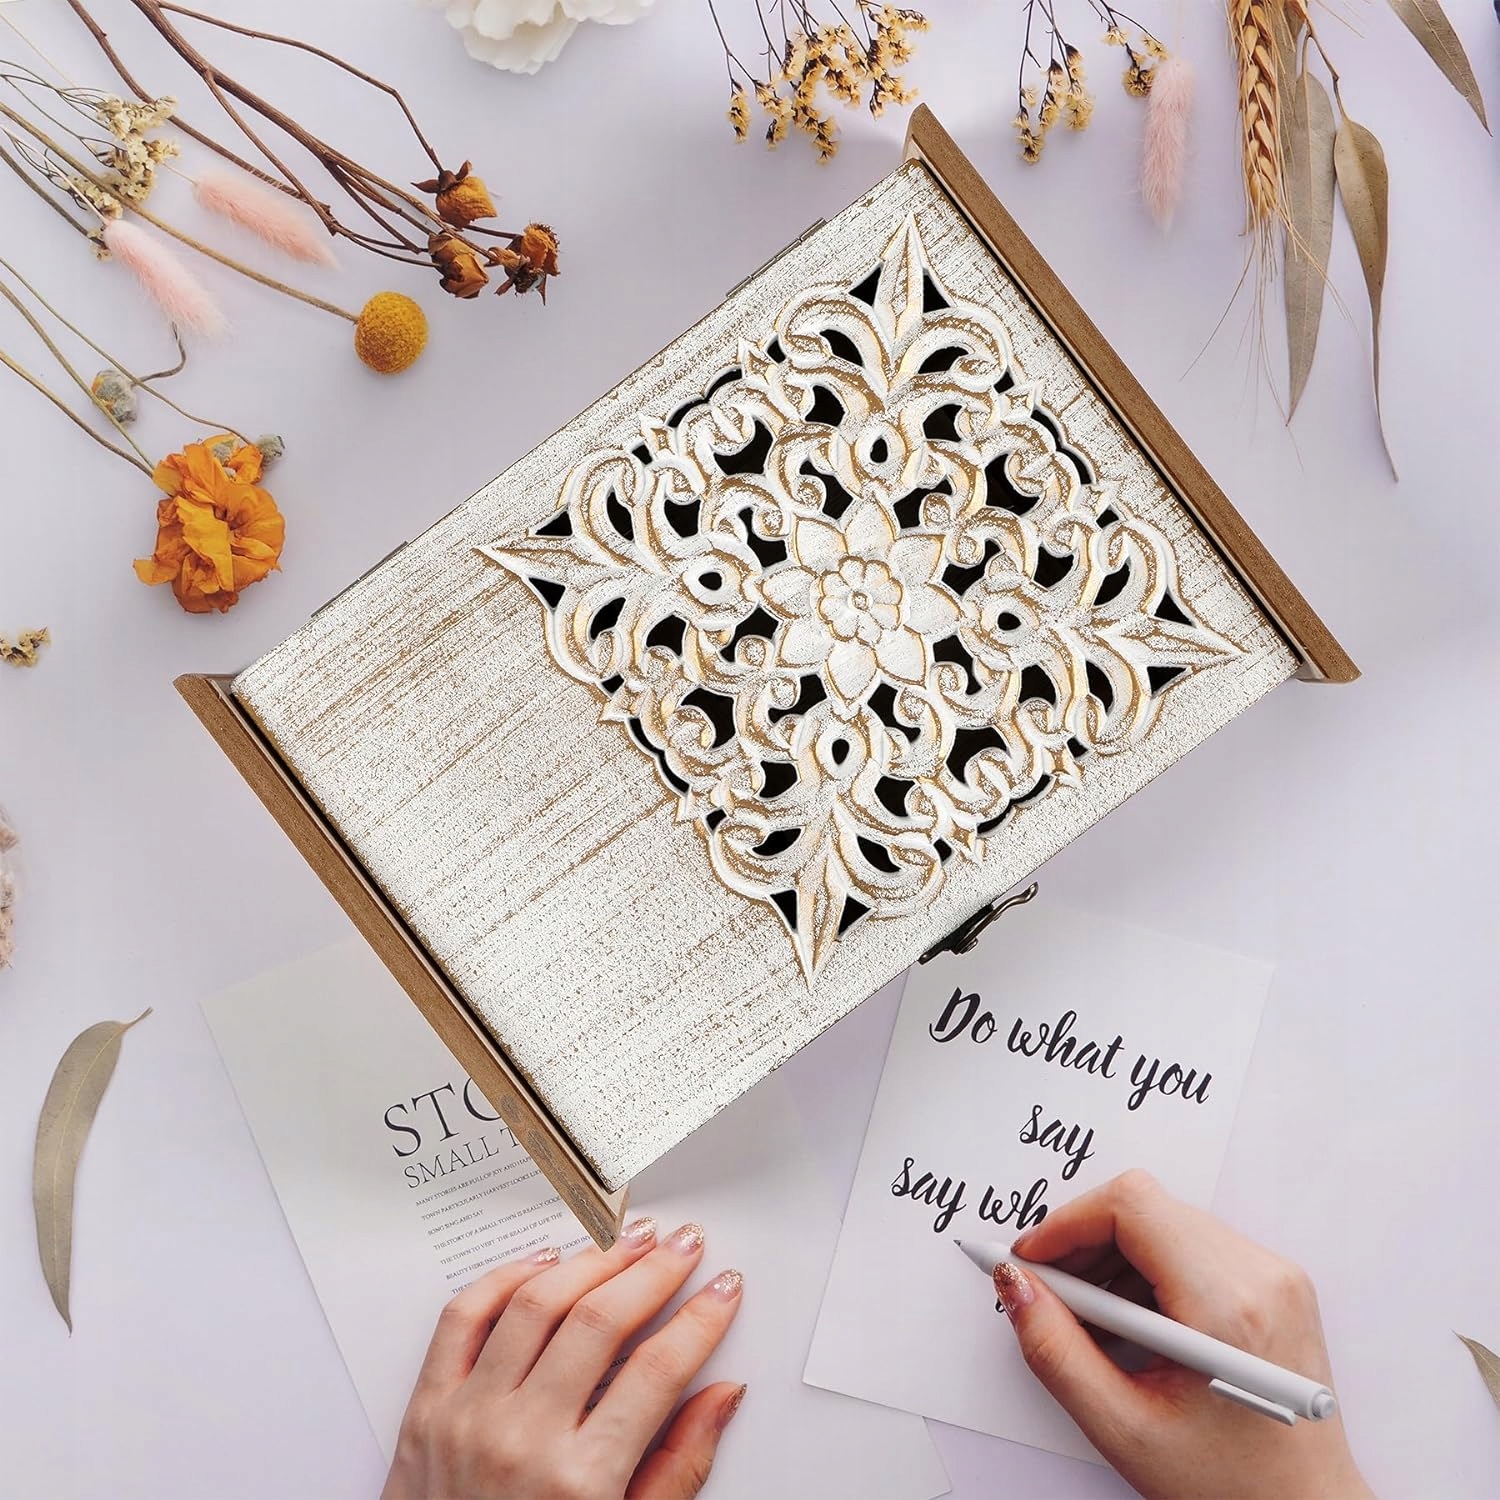 STO
SMALL T
MANY STORIES ARE FULL OF JOY AND HAP
TOWN PARTICULARLY HARVEST LOOKS LIK
SONG SING AND SAY
THE STORY OF A SMALL TOWN IS REALLY GOOD
THE TOWN TO VISIT THE REALM OF LIFE THE
BEAUTY HERE INCLUDE SING AND SAY
GOOD IN
Do what you
say
say wh